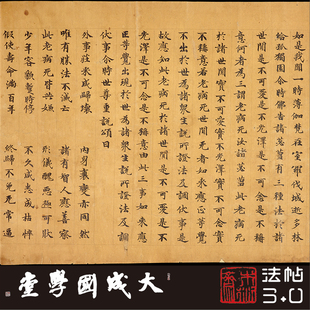 如是我聞一時薄伽梵在室羅伐城逝多林
給孤獨園尒時佛告諸苾芻有三種法於諸
世間是不可愛是不光澤是不可念是不稱
意何者為三謂老病死汝諸苾芻此老病死
於諸世間實不可愛實不光澤實不可念實
不稱意若老病死世間無者如來應正等覺
不出於世為諸眾生說所證法及調伏事是
故應知此老病死於諸世間是不可愛是不
光澤是不可念是不稱意由此三事如來應
正等覺出現於世為諸眾生說所證法及調
伏事尒時世尊重說頌曰
外事莊彩咸歸壞 內身衰變亦同然
唯有勝法不滅亡 諸有智人應善察
此老病死皆共嫌 形儀醜惡極可猒
少年容皃暫時停 不久咸悉成枯悴
假使壽命滿百年 終歸不免無常逼
大成國學堂
法帖
3.0